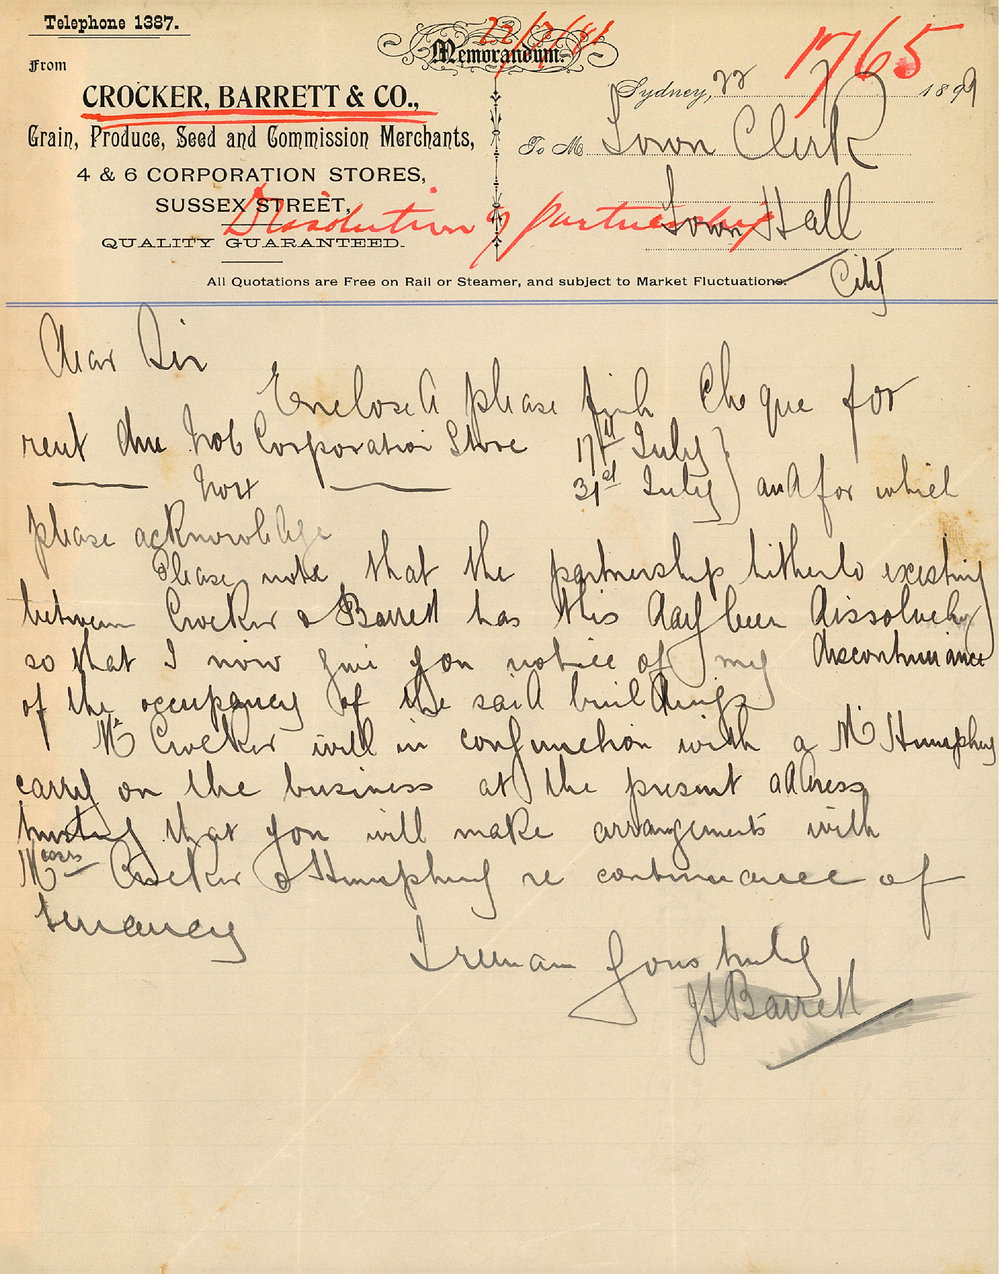 Telephone 1387.
Memorandum.
1765
From
Sydney, 22 1899
CROCKER, BARRETT & CO.,
Grain, Produce, Seed and Commission Merchants,
To Mr Town Clerk
4 & 6 CORPORATION STORES,
SUSSEX STREET,
Dissolution of partnership
Town Hall
QUALITY GUARANTEED.
City
All Quotations are Free on Rail or Steamer, and subject to Market Fluctuations.
Dear Sir
Enclosed please find Cheque for
rent due No 6 Corporation Store 17th July
No 4 31st July and for which
please acknowledge
Please note that the partnership hitherto existing
between Crocker & Barrett has this day been dissolved
so that I now give you notice of my discontinuance
of the occupancy of the said buildings
Mr Crocker will in conjunction with a Mr Humphrey
carry on the business at the present address
trusting that you will make arrangements with
Messrs Crocker & Humphrey re continuance of
tenancy
I remain yours truly
JS Barrett